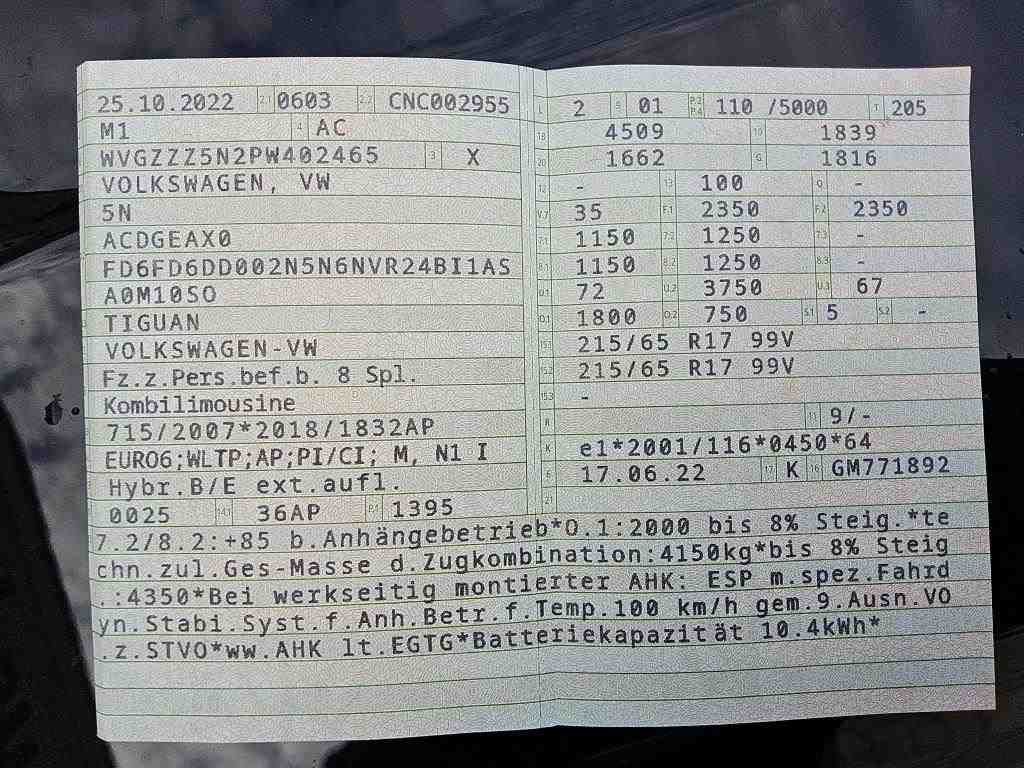 25.10.2022 2.1 0603 2.2 CNC002955
M1 4 AC
WVGZZZ5N2PW402465 3 X
VOLKSWAGEN, VW
5N
ACDGEAX0
FD6FD6DD002N5N6NVR24BI1AS
A0M10SO
TIGUAN
VOLKSWAGEN-VW
Fz.z.Pers.bef.b. 8 Spl.
Kombilimousine
715/2007*2018/1832AP
EURO6;WLTP;AP;PI/CI; M, N1 I
Hybr.B/E ext.aufl.
0025 14.1 36AP P.1 1395
L 2 9 01 P.2 P.4 110 /5000 T 205
18 4509 19 1839
20 1662 G 1816
12 - 13 100 Q -
V.7 35 F.1 2350 F.2 2350
7.1 1150 7.2 1250 7.3 -
8.1 1150 8.2 1250 8.3 -
U.1 72 U.2 3750 U.3 67
O.1 1800 O.2 750 S.1 5 S.2 -
15.1 215/65 R17 99V
15.2 215/65 R17 99V
15.3 -
R 11 9/-
K e1*2001/116*0450*64
6 17.06.22 17 K 16 GM771892
21
7.2/8.2:+85 b.Anhängebetrieb*O.1:2000 bis 8% Steig.*te
chn.zul.Ges-Masse d.Zugkombination:4150kg*bis 8% Steig
.:4350*Bei werkseitig montierter AHK: ESP m.spez.Fahrd
yn.Stabi.Syst.f.Anh.Betr.f.Temp.100 km/h gem.9.Ausn.VO
.z.STVO*ww.AHK lt.EGTG*Batteriekapazität 10.4kWh*